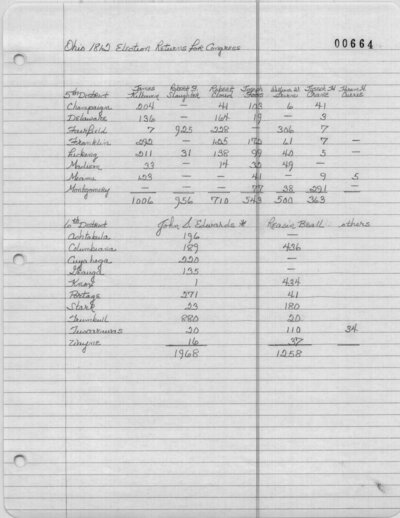 Ohio 1812 Election Returns for Congress
00664
5th District James Kilbourn Robert F. Slaughter Robert Joseph William Joseph H
Champaign 204 — 41 103 6 41
Delaware 136 — 164 19 — 3
Fairfield 7 925 228 — 306 7
Franklin 7 —
Licking 211 31 138 99 40 5 —
Madison 33 — 14 30 49 —
Miami — — 41 — 9 5
Montgomery — — — 77 38 291 —
1006 956 710 543 500 363
6th District John S. Edwards * Reasin Beall others
Ashtabula 196 —
Columbiana 189 436
Cuyahoga 220 —
Geauga 135 —
Knox 1 434
Portage 271 41
Stark 23 180
Trumbull 880 20
Tuscarawas 20 110 34
Wayne 16 37
1968 1258